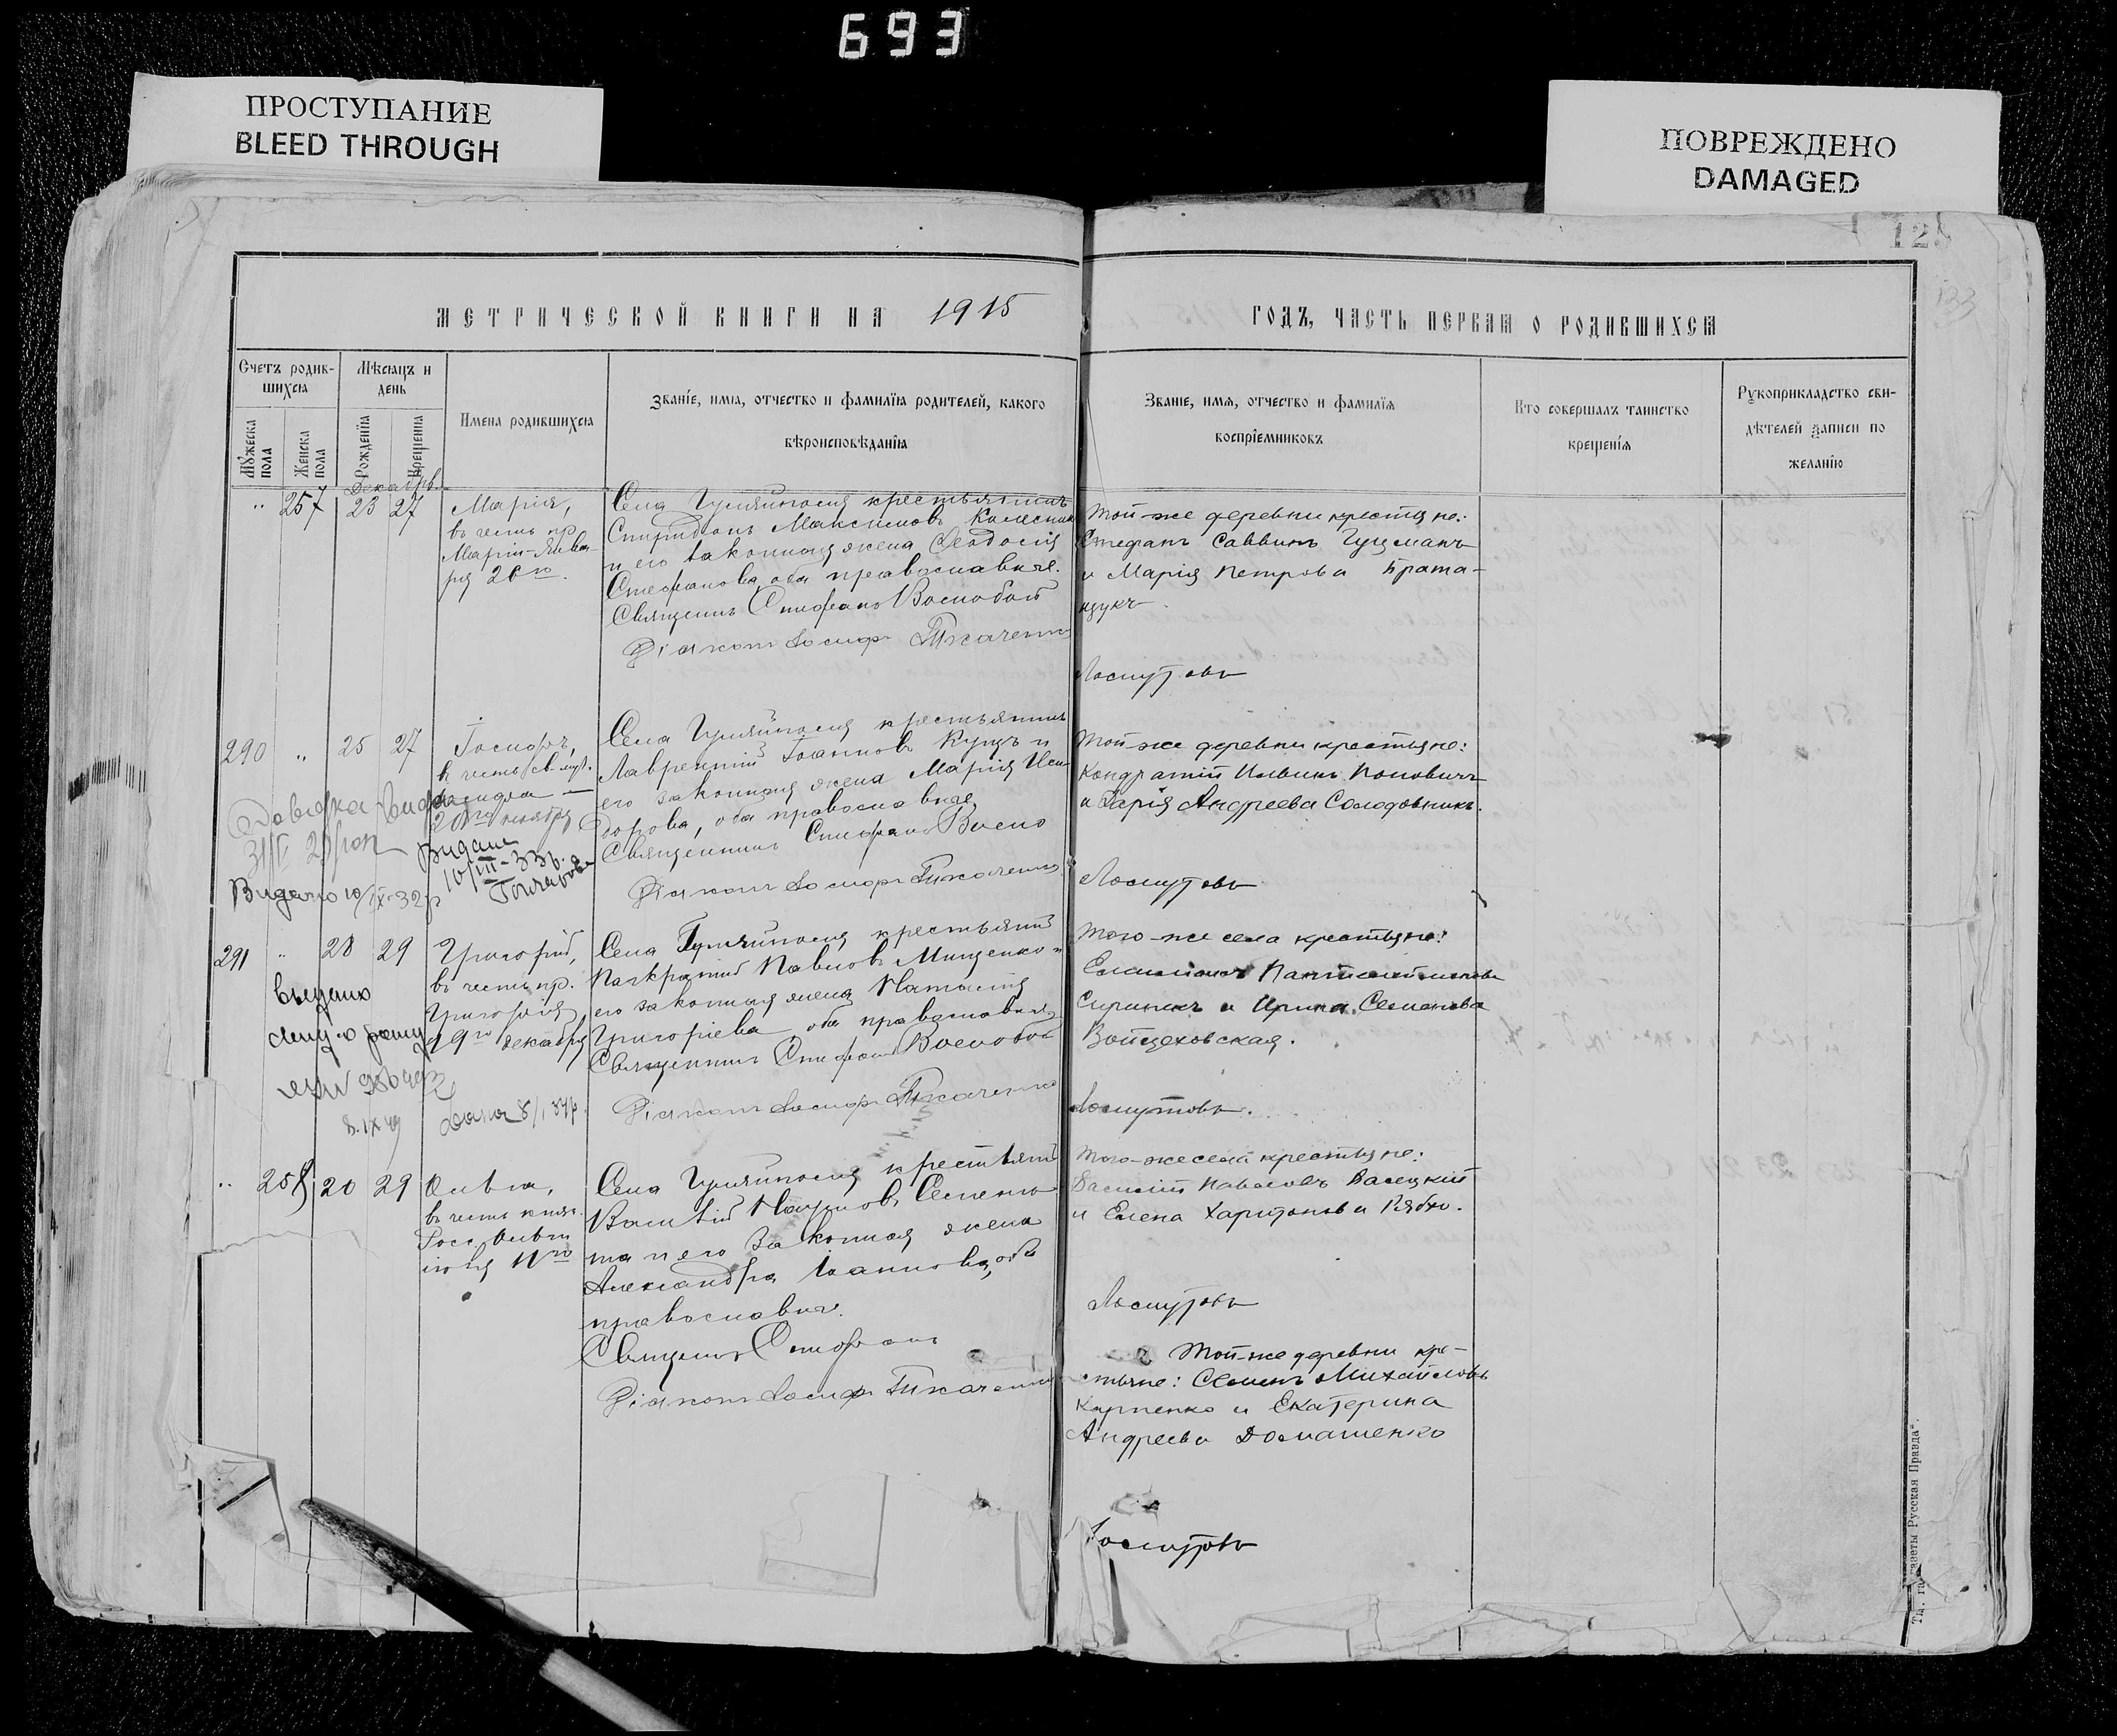 693
ПРОСТУПАНИЕ
BLEED THROUGH
ПОВРЕЖДЕНО
DAMAGED
128
133
МЕТРИЧЕСКОЙ КНИГИ НА 1915
ГОДЪ, ЧАСТЬ ПЕРВАЯ О РОДИВШИХСЯ
Счетъ родив-
шихся
Мужеска
пола
Женска
пола
Мѣсяцъ и
день
Рожденія
Крещенія
Имена родившихся
Званіе, имя, отчество и фамилія родителей, какого
вѣроисповѣданія
Званіе, имя, отчество и фамилія
воспріемниковъ
Кто совершалъ таинство
крещенія
Рукоприкладство сви-
дѣтелей записи по
желанію
Декабрь
" 257 23 27
Марія,
въ честь пр.
Маріи - Янва-
ря 26го.
Села крестьянинъ
Спиридонъ Максимовъ Колесник
и его законная жена Феодосія
Стефанова, оба православные.
Священник Стефанъ Воснобой
Діаконъ Іосифъ Ткаченко
Той-же деревни крестьяне:
Стефанъ Саввинъ Гуцманъ
и Марія Петрова Брата-
щукъ
Лоскутовъ
290 " 25 27
Іосифъ,
въ честь св. муч.
20го ноября
Села крестьянинъ
Лаврентій Іоанновъ Куцъ и
его законная жена Марія Иси-
дорова, оба православные.
Священникъ Стефанъ
Діаконъ Іосифъ Ткаченко
Довідка
Видана
10/III-33р.
Гончарова
Видано 10/IX-32р
Той-же деревни крестьяне:
Кондратій Ильинъ Поповичъ
и Дарія Андреева Солодовникъ.
Лоскутовъ
291 " 28 29
Григорій,
въ честь пр.
Григорія
19го декабря
Села крестьянинъ
Панкратій Павловъ Мищенко и
его законная жена Наталія
Григоріева, оба православные
Священникъ Стефанъ Воснобой
Діаконъ Іосифъ Ткаченко
выдано
8.IX 49
Дана 8/I 34р.
Того-же села крестьяне:
Емиліанъ Пантелеймоновъ
и Ирина Семенова
Войцеховская.
Лоскутовъ.
" 258 20 29
Ольга,
въ честь княг.
Росс. Ольги
іюля 11го
Села крестьянинъ
Василій Наумовъ Семеню-
та и его законная жена
Александра Іаннова, оба
православные.
Священникъ Стефанъ
Діаконъ Іосифъ Ткаченко
Того-же села крестьяне:
Василій Павловъ Валецкій
и Елена Харитонова Рябко.
Лоскутовъ
Той-же деревни кре-
стьяне: Семенъ Михайловъ
Карпенко и Екатерина
Андреева Домашенко
Лоскутовъ
Тип. газеты „Русская Правда".